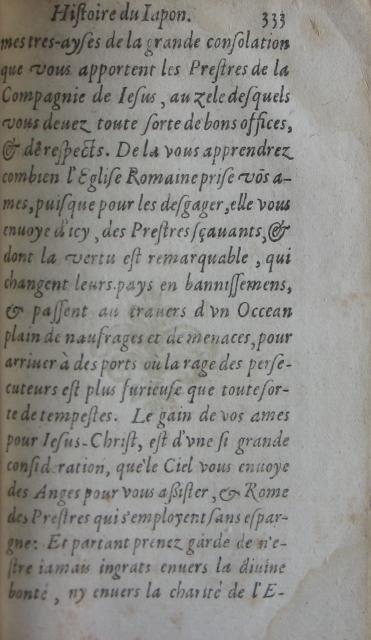 Histoire du Iapon. 333
mes tres-ayses de la grande consolation
que vous apportent les Prestres de la
Compagnie de Iesus, au zele desquels
vous deuez toute sorte de bons offices,
& de respects. De la vous apprendrez
combien l'Eglise Romaine prise vōs a-
mes, puisque pour les desgager, elle vous
enuoye d'icy, des Prestres sçauants, &
dont la vertu est remarquable, qui
changent leurs pays en bannissemens,
& passent au trauers d'vn Occean
plain de naufrages et de menaces, pour
arriuer à des ports où la rage des perse-
cuteurs est plus furieuse que toute sor-
te de tempestes. Le gain de vos ames
pour Iesus-Christ, est d'vne si grande
consideration, que le Ciel vous enuoye
des Anges pour vous assister, & Rome
des Prestres qui s'employent sans espar-
gne: Et partant prenez garde de n'e-
stre iamais ingrats enuers la diuine
bonté, ny enuers la charité de l'E-